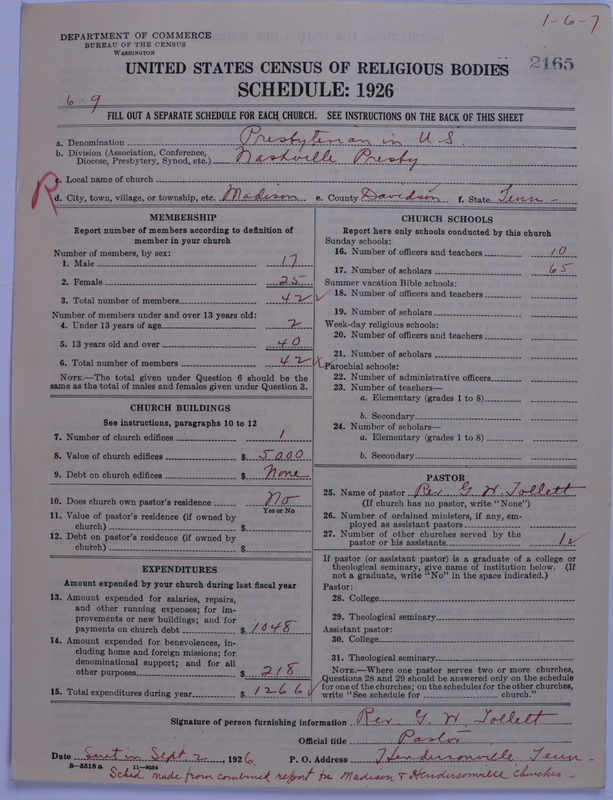 1-6-7
DEPARTMENT OF COMMERCE
BUREAU OF THE CENSUS
WASHINGTON
2165
UNITED STATES CENSUS OF RELIGIOUS BODIES
SCHEDULE: 1926
6-9
FILL OUT A SEPARATE SCHEDULE FOR EACH CHURCH. SEE INSTRUCTIONS ON THE BACK OF THIS SHEET
a. Denomination Presbyterian in U.S.
b. Division (Association, Conference, Diocese, Presbytery, Synod, etc.) Nashville Presby
c. Local name of church
R
d. City, town, village, or township, etc. Madison e. County Davidson f. State Tenn-
MEMBERSHIP
Report number of members according to definition of
member in your church
Number of members, by sex:
1. Male 17
2. Female 25
3. Total number of members 42 ✓
Number of members under and over 13 years old:
4. Under 13 years of age 2
5. 13 years old and over 40
6. Total number of members 42 x
NOTE.—The total given under Question 6 should be the
same as the total of males and females given under Question 3.
CHURCH BUILDINGS
See instructions, paragraphs 10 to 12
7. Number of church edifices 1
8. Value of church edifices $ 5000
9. Debt on church edifices $ None
10. Does church own pastor's residence No
Yes or No
11. Value of pastor's residence (if owned by
church) $
12. Debt on pastor's residence (if owned by
church) $
EXPENDITURES
Amount expended by your church during last fiscal year
13. Amount expended for salaries, repairs,
and other running expenses; for im-
provements or new buildings; and for
payments on church debt $ 1048
14. Amount expended for benevolences, in-
cluding home and foreign missions; for
denominational support; and for all
other purposes $ 218
15. Total expenditures during year $ 1266 ✓
CHURCH SCHOOLS
Report here only schools conducted by this church
Sunday schools:
16. Number of officers and teachers 10
17. Number of scholars 65
Summer vacation Bible schools:
18. Number of officers and teachers
19. Number of scholars
Week-day religious schools:
20. Number of officers and teachers
21. Number of scholars
Parochial schools:
22. Number of administrative officers
23. Number of teachers—
a. Elementary (grades 1 to 8)
b. Secondary
24. Number of scholars—
a. Elementary (grades 1 to 8)
b. Secondary
PASTOR
25. Name of pastor Rev G W Tollett
(If church has no pastor, write "None")
26. Number of ordained ministers, if any, em-
ployed as assistant pastors
27. Number of other churches served by the
pastor or his assistants 1 ✓
If pastor (or assistant pastor) is a graduate of a college or
theological seminary, give name of institution below. (If
not a graduate, write "No" in the space indicated.)
Pastor:
28. College
29. Theological seminary
Assistant pastor:
30. College
31. Theological seminary
NOTE.—Where one pastor serves two or more churches,
Questions 28 and 29 should be answered only on the schedule
for one of the churches; on the schedules for the other churches,
write "See schedule for church."
Signature of person furnishing information Rev. G. W. Tollett
Official title Pastor
Date Sent in Sept. 2, 1926 P. O. Address Hendersonville Tenn-
8-5518a 11-9054
Sched. made from combined report for Madison & Hendersonville Churches-